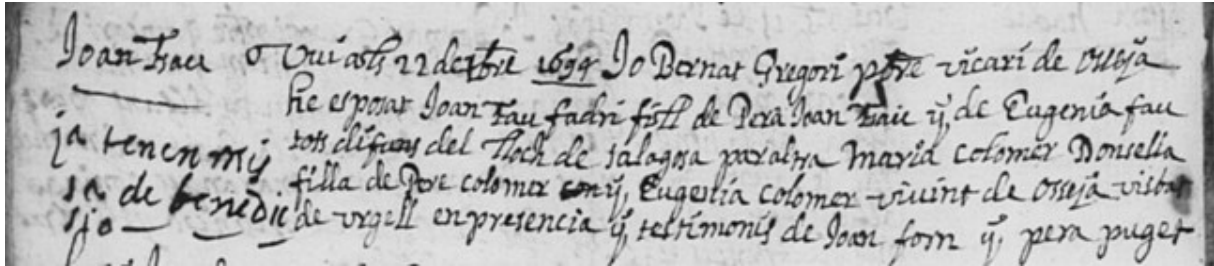 Joan Fau
Vui als 22 decbre 1694 Jo Bernat Gregori pbre vicari de osseja
he esposat Joan Fau fadri fill de Pera Joan Fau y, de Eugenia fau
tots difuns del lloch de salagosa par altra Maria colomer Donsella
filla de Pere colomer y, Eugenia colomer vivint de osseja bisbat
de urgell en presencia y, testimonis de Joan forn y, pera puget
ja tenen mis
sa de benedic
sio